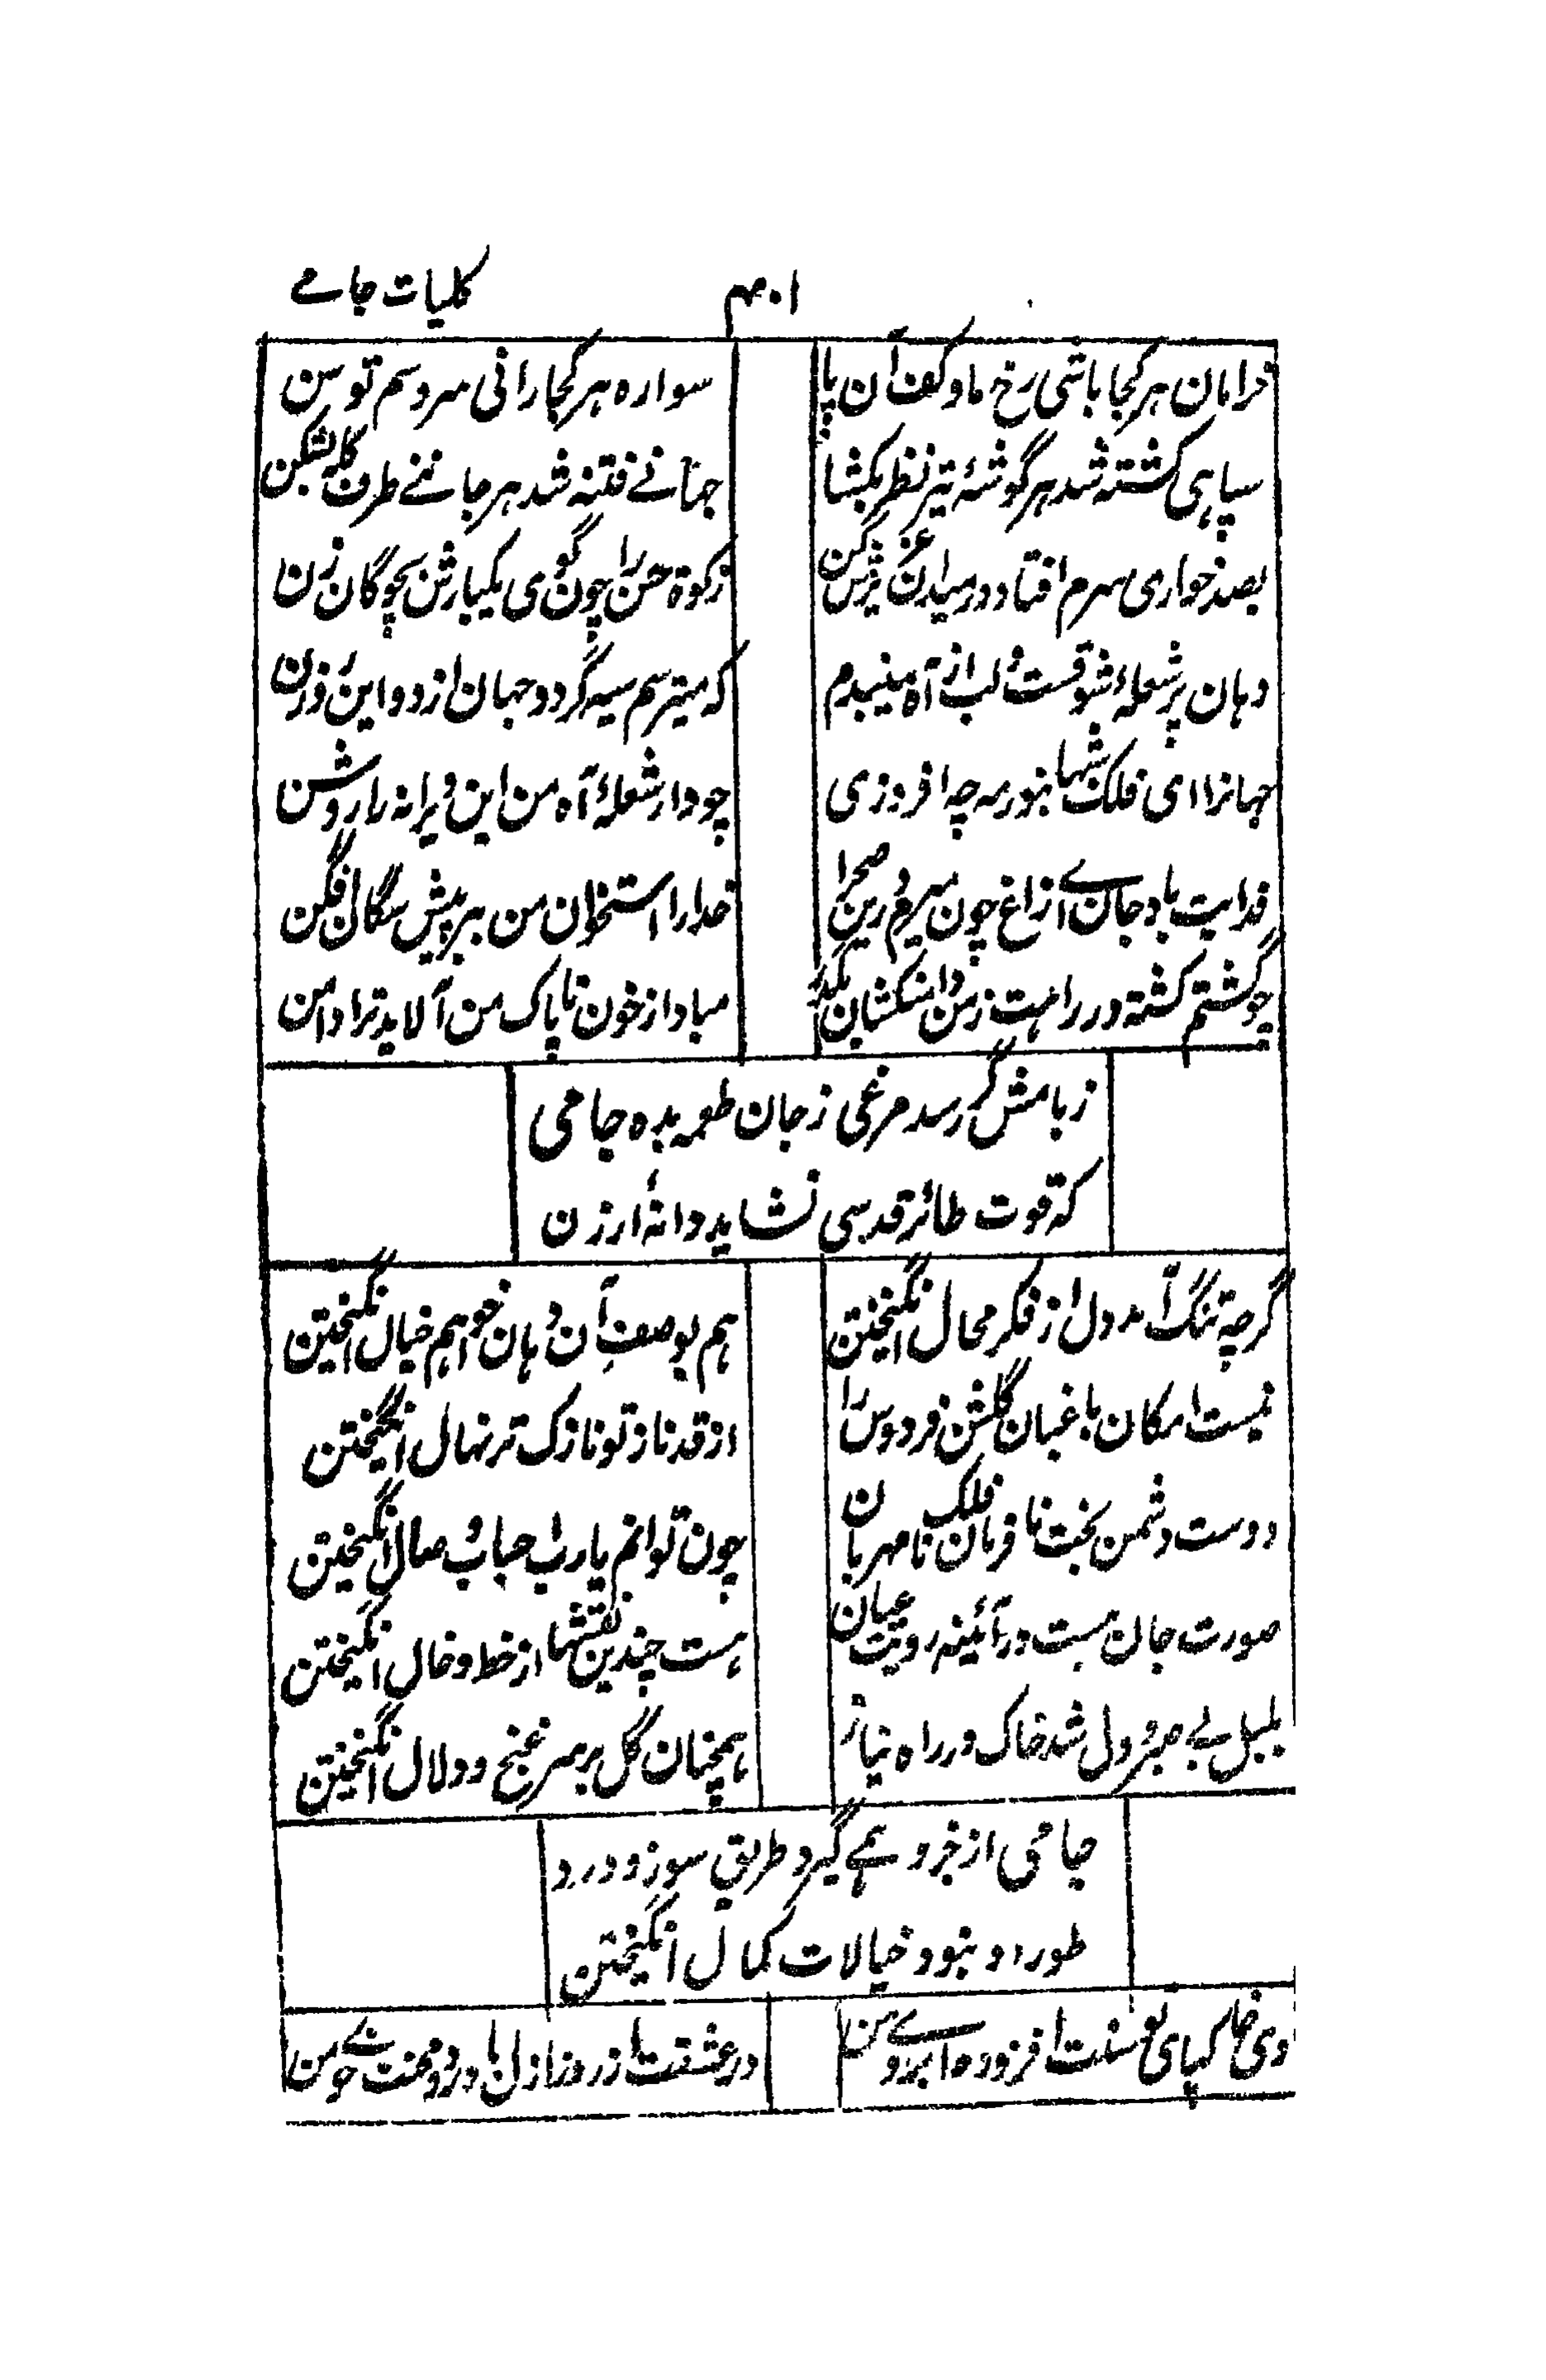 ۴۰۱ کلیات جامے
خرامان هر کجا باشی رخ ما و کف آن پا
سواره هر کجا رانی سر و سم توسن
سپاهی کشته شد هر گوشهٔ تیر نظر بکشا
جهانے فتنه شد هر جانبے طرف کله بشکن
بصد خواری سرم افتاد در میدان
زکوة حسن را چون گوی یکبارش بچوگان زن
دهان پر شعلهٔ شوقست لب از آه میبندم
که میترسم سیه گردد جهان از دود این روزن
جهانرا ای فلک شبها بنور مه چه افروزی
چو دارد شعلهٔ آه من این ویرانه را روشن
فدایت باد جان اے زاغ چون میرم درین صحرا
خدارا استخوان من ببر پیش سگان افگن
چو گشتم کشته در راهت ز من دامنکشان بگذر
مباد از خون ناپاک من آلاید ترا دامن
ز بامش گر رسد مرغی ز جان طعمه بده جامی
که قوت طائر قدسی نشاید دانهٔ ارزن
گرچه تنگ آمد دل از فکر محال انگیختن
هم بوصف آن دهان خواهم خیال انگیختن
نیست امکان باغبان گلشن فردوس را
از قد ناز تو نازک تر نهال انگیختن
دوست دشمن بخت نا فرمان فلک نا مهربان
چون توانم یارب اسباب وصال انگیختن
صورت جان هست در آئینه رویت عیان
هست چندین نقشها از خط و خال انگیختن
بلبل بے صبر و دل شد خاک در راه نیاز
همچنان گل بر سر غنج و دلال انگیختن
جامی از خسرو همے گیرد طریق سوز و درد
طور او نبود خیالات کمال انگیختن
وی خاکپای تو سنت افزوده آبروے من
در عشقت از روز ازل با درد و محنت خوے من